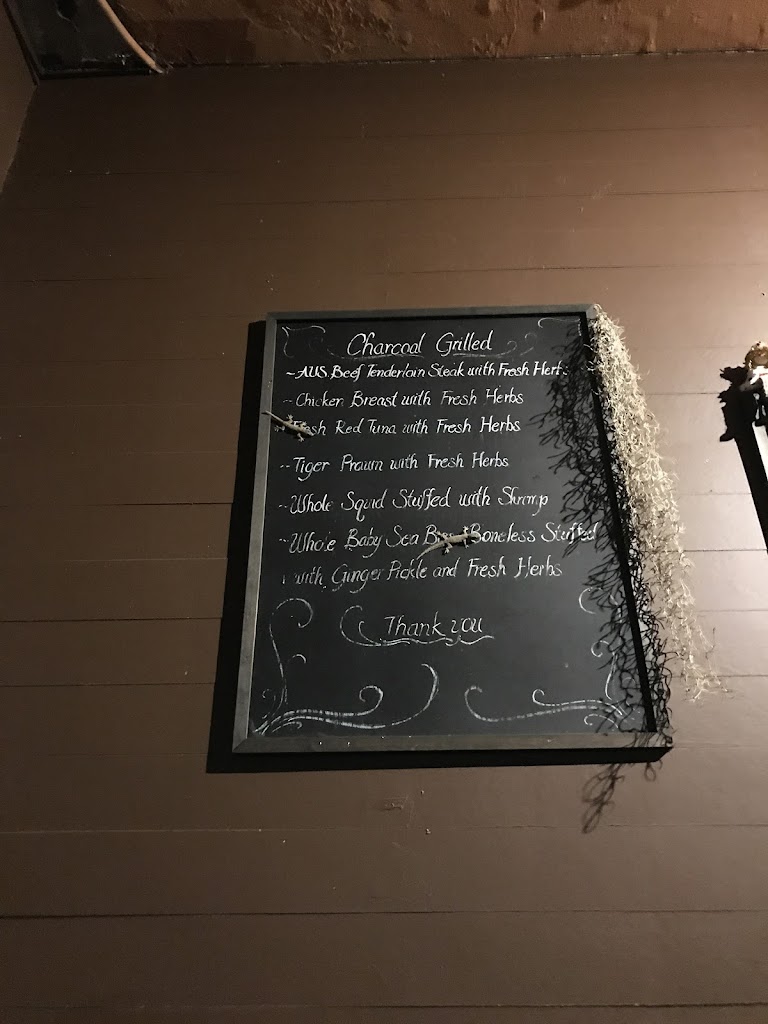 Charcoal Grilled
~AUS Beef Tenderloin Steak with Fresh Herbs
~Chicken Breast with Fresh Herbs
Fresh Red Tuna with Fresh Herbs
~Tiger Prawn with Fresh Herbs
~Whole Squid Stuffed with Shrimp
~Whole Baby Sea Boneless Stuffed
with Ginger Pickle and Fresh Herbs
Thank you